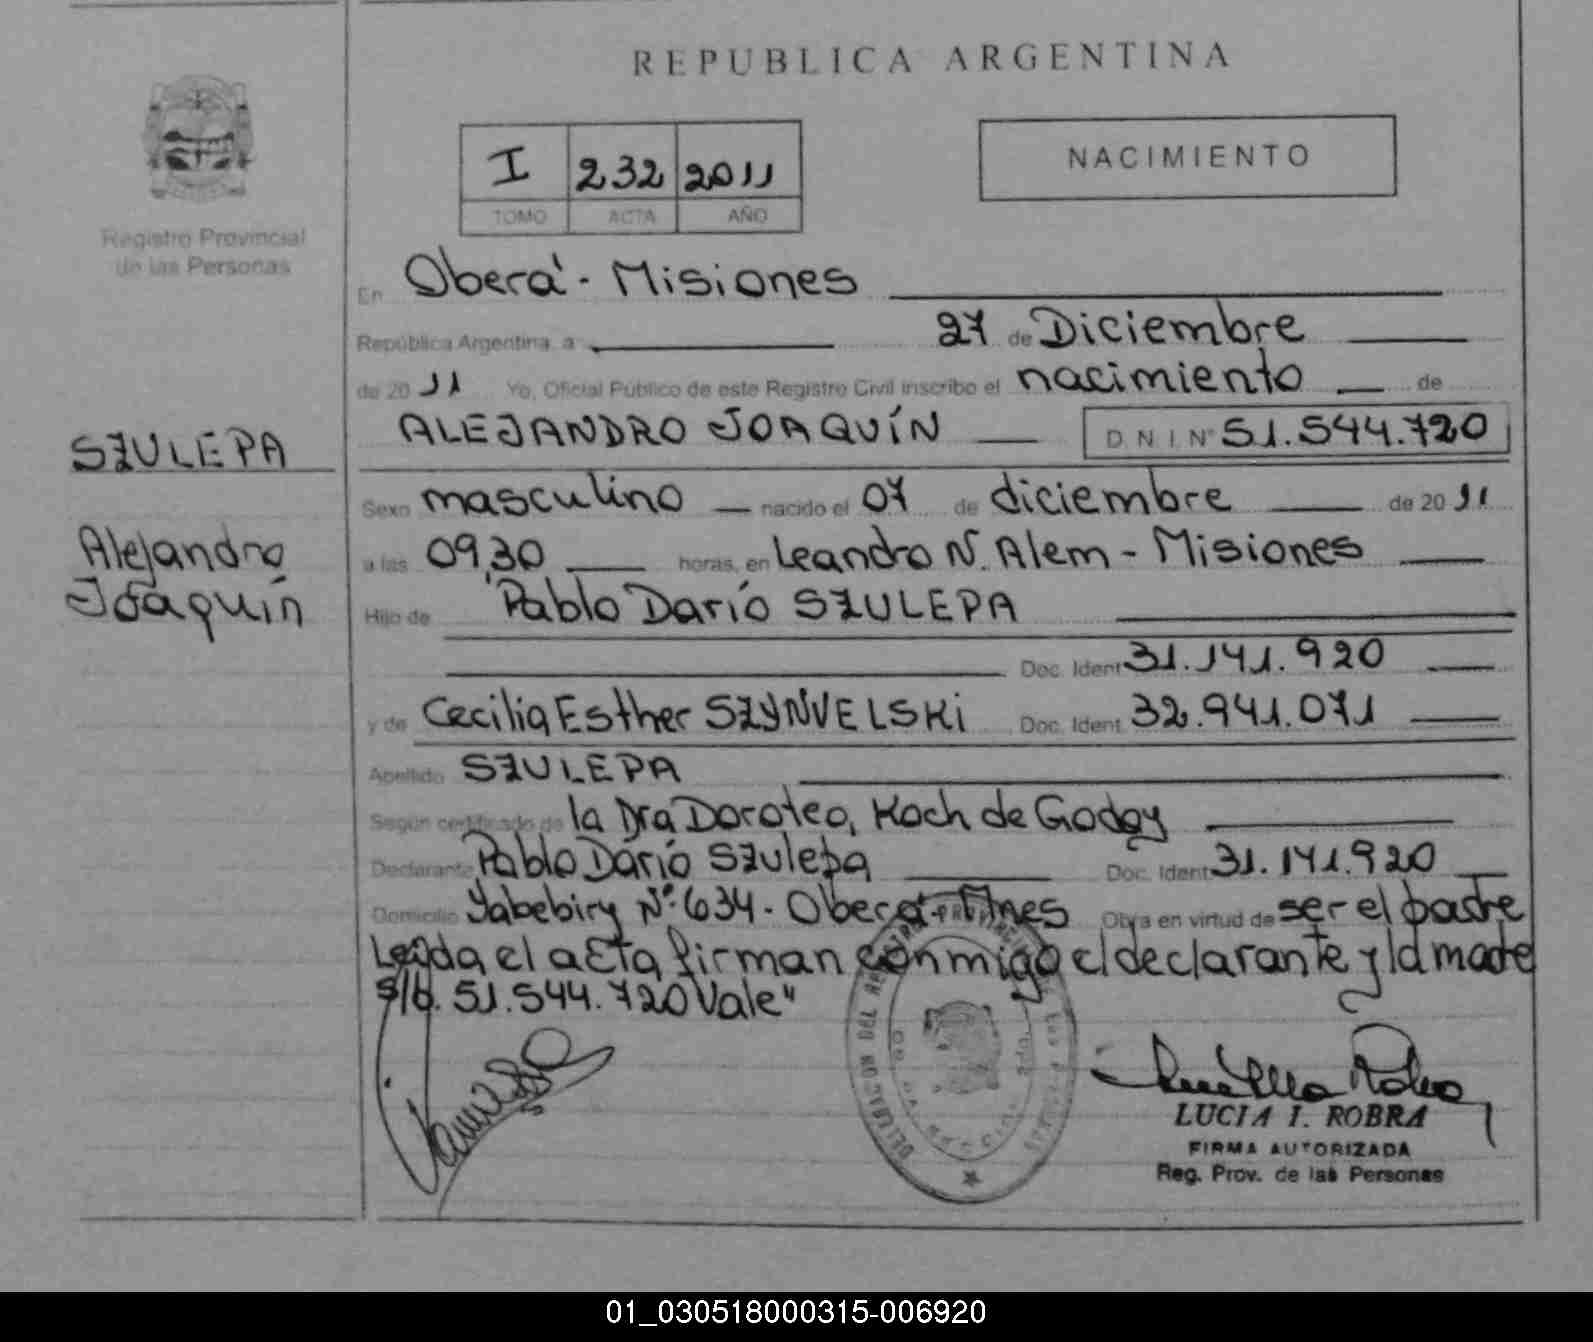 REPUBLICA ARGENTINA
I 232 2011
TOMO ACTA AÑO
NACIMIENTO
Registro Provincial
de las Personas
En Oberá - Misiones
República Argentina, a 27 de Diciembre
de 2011 Yo, Oficial Público de este Registro Civil inscribo el nacimiento de
ALEJANDRO JOAQUÍN D.N.I. Nº 51.544.720
SZULEPA
Alejandro
Joaquín
Sexo masculino nacido el 07 de diciembre de 2011
a las 09,30 horas, en Leandro N. Alem - Misiones
Hijo de Pablo Darío SZULEPA
Doc. Ident 31.141.920
y de Cecilia Esther SZYNVELSKi Doc. Ident. 32.941.071
Apellido SZULEPA
Según certificado de la Dra Doroteo, Koch de Godoy
Declarante Pablo Darío Szulepa Doc. Ident 31.141.920
Domicilio Yabebiry Nº 634 - Oberá - Mnes Obra en virtud de ser el padre
Leída el acta firman conmigo el declarante y la madre
s/b. 51.544.720 Vale"
LUCIA I. ROBRA
FIRMA AUTORIZADA
Reg. Prov. de las Personas
01_030518000315-006920